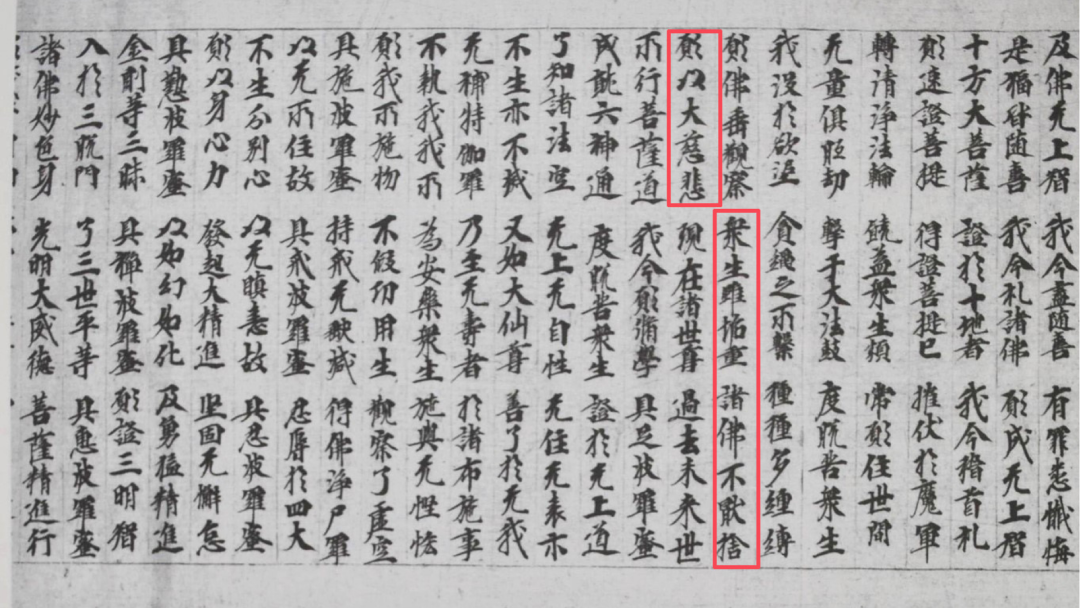 及佛无上智 我今盡随喜 有罪悉懺悔
是福皆随喜 我今礼諸佛 願成无上智
十方大菩薩 證於十地者 我今稽首礼
願速證菩提 得證菩提已 摧伏於魔軍
轉清淨法輪 饒益衆生類 常願住世間
无量俱胝劫 擊于大法鼓 度脱苦衆生
我没於欲泥 貪繩之所繫 種種多纏縛
願佛垂觀察 衆生雖垢重 諸佛不猒捨
願以大慈悲 現在諸世尊 過去未来世
所行菩薩道 我今願脩學 具足波羅蜜
成就六神通 度脱苦衆生 證於无上道
了知諸法空 无上无自性 无住无表示
不生亦不滅 又如大仙尊 善了於无我
无補特伽羅 乃至无壽者 於諸布施事
不執我我所 為安樂衆生 施與无慳悋
願我所施物 不假功用生 觀察了虚空
具施波羅蜜 持戒无缺減 得佛淨尸羅
以无所住故 具戒波羅蜜 忍辱於四大
不生分別心 以无瞋恚故 具忍波羅蜜
願以身心力 發起大精進 堅固无懈怠
具懃波羅蜜 以如幻如化 及勇猛精進
金剛等三昧 具禪波羅蜜 願證三明智
入於三脱門 了三世平等 具慧波羅蜜
諸佛妙色身 光明大威德 菩薩精進行